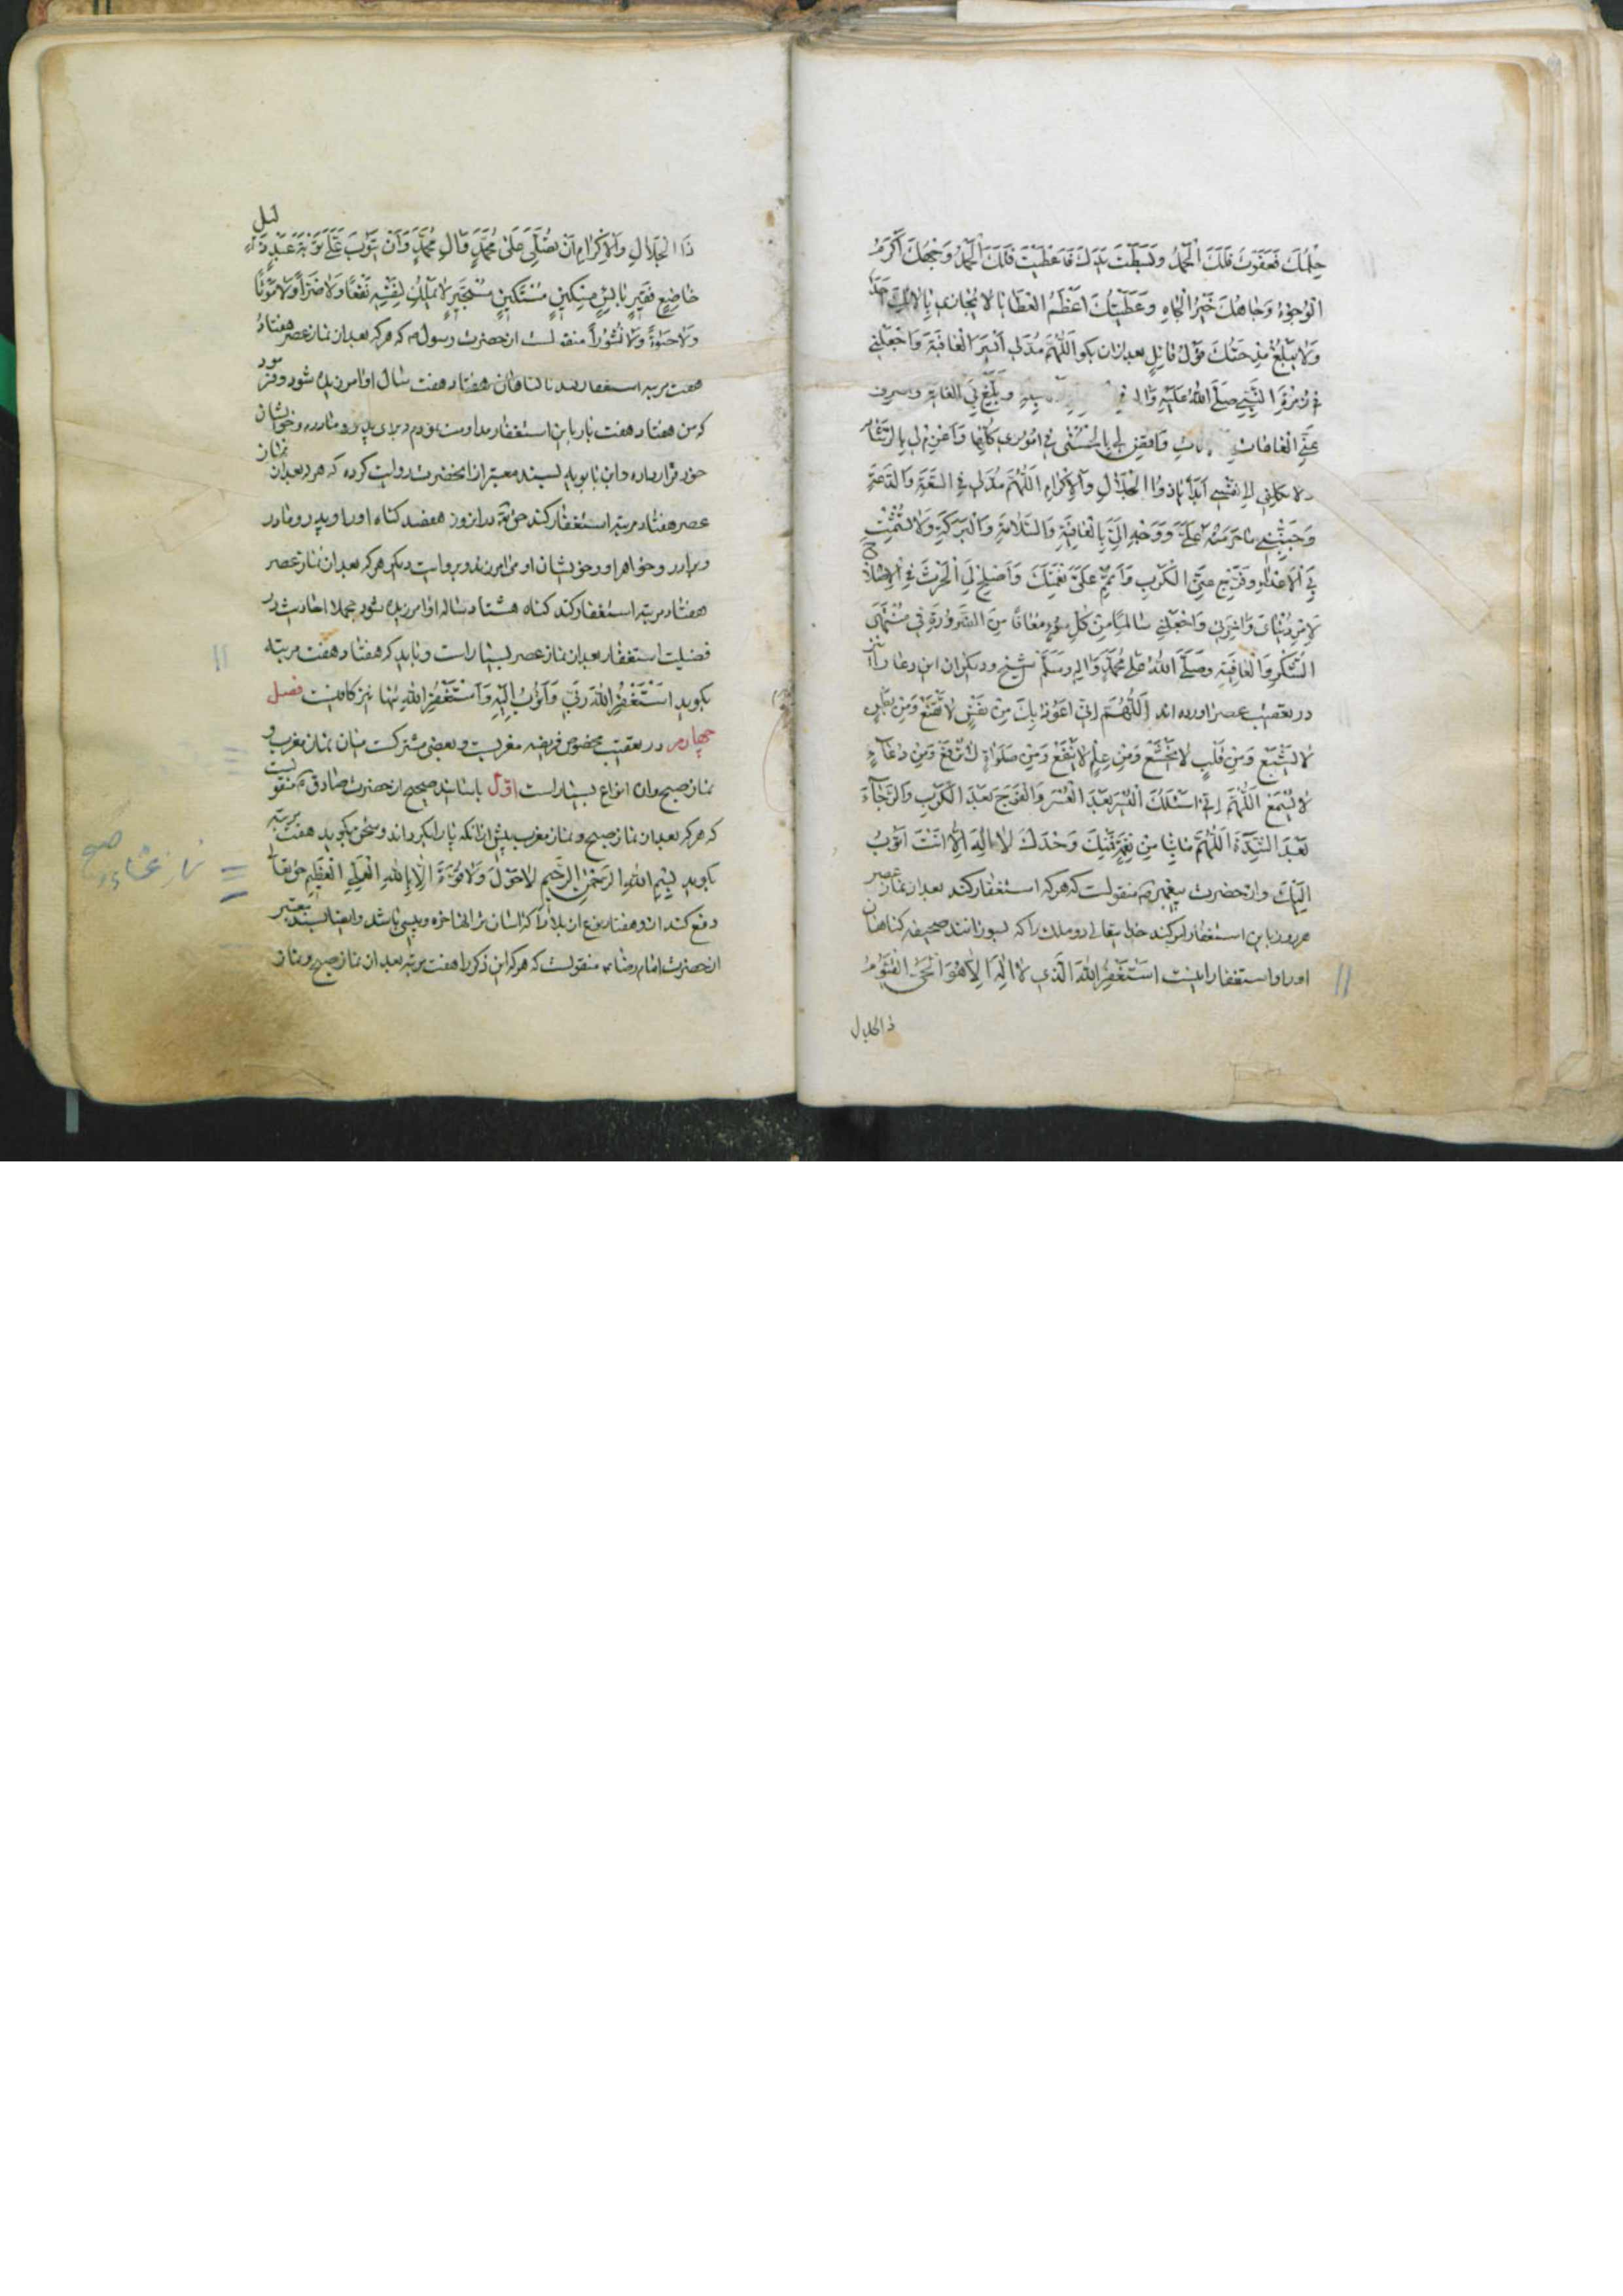 حِلْمُكَ فَعَفَوْتَ فَلَكَ الْحَمْدُ وَبَسَطْتَ يَدَكَ فَاَعْطَيْتَ فَلَكَ الْحَمْدُ وَجْهُكَ اَكْرَمُ
الْوُجُوْهِ وَجَاهُكَ خَيْرُ الْجَاهِ وَعَطِيَّتُكَ اَعْظَمُ الْعَطَايَا لَا يُجَازِي بِاٰلَائِكَ اَحَدٌ
وَلَا يَبْلُغُ مِدْحَتَكَ قَوْلُ قَائِلٍ بعد ازان بكو اللّٰهُمَّ مُدَّ لِي اَيْسَرَ الْعَافِيَةِ وَاجْعَلْنِي
فِي زُمْرَةِ النَّبِيِّ صَلَّى اللّٰهُ عَلَيْهِ وَاٰلِهِ فِي وَبَلِّغْ بِيَ الْغَايَةَ وَاصْرِفْ
عَنِّي الْعَاهَاتِ وَاقْضِ لِي بِالْحُسْنٰى فِي اُمُوْرِي كُلِّهَا وَاعْزِمْ لِي بِالرَّشَادِ
وَلَا تَكِلْنِي اِلٰى نَفْسِي اَبَدًا يَا ذَا الْجَلَالِ وَالْاِكْرَامِ اَللّٰهُمَّ مُدَّ لِي فِي السَّعَةِ وَالدَّعَةِ
وَجَنِّبْنِي مَا حَرَّمْتَهُ عَلَيَّ وَوَجِّهْ اِلَيَّ بِالْعَافِيَةِ وَالسَّلَامَةِ وَالْبَرَكَةِ وَلَا تُشْمِتْ
بِيَ الْاَعْدَاءَ وَفَرِّجْ عَنِّي الْكَرْبَ وَاَتْمِمْ عَلَيَّ نِعْمَتَكَ وَاَصْلِحْ لِيَ الْحَرْثَ فِي الْاِصْلَاحِ
لِاَمْرِ دُنْيَايَ وَاٰخِرَتِي وَاجْعَلْنِي سَالِمًا مِنْ كُلِّ سُوْءٍ مُعَافًا مِنَ الضَّرُوْرَةِ فِي مُنْتَهَى
الشُّكْرِ وَالْعَافِيَةِ وصَلَّى اللّٰهُ عَلٰى مُحَمَّدٍ وَاٰلِهِ وَسَلَّمَ شيخ و ديكران اين دعا را نيز
در تعقيب عصر اورده اند اَللّٰهُمَّ اِنِّي اَعُوْذُ بِكَ مِنْ نَفْسٍ لَا تَقْنَعُ وَمِنْ بَطْنٍ
لَا يَشْبَعُ وَمِنْ قَلْبٍ لَا يَخْشَعُ وَمِنْ عِلْمٍ لَا يَنْفَعُ وَمِنْ صَلَوٰةٍ لَا تُرْفَعُ وَمِنْ دُعَآءٍ
لَا يُسْمَعُ اَللّٰهُمَّ اِنِّي اَسْئَلُكَ الْيُسْرَ بَعْدَ الْعُسْرِ وَالْفَرَجَ بَعْدَ الْكَرْبِ وَالرَّخَآءَ
بَعْدَ الشِّدَّةِ اَللّٰهُمَّ مَا بِنَا مِنْ نِعْمَةٍ فَمِنْكَ وَحْدَكَ لَا اِلٰهَ اِلَّا اَنْتَ اَتُوْبُ
اِلَيْكَ و از حضرت پيغمبر ص منقولست كه هركه استغفار كند بعد از نماز عصر
هر روز باين استغفار امر كند خداى تعالى دو ملك را كه بسوزانند صحيفه كناهان
اورا و استغفار اينست اَسْتَغْفِرُ اللّٰهَ الَّذِي لَا اِلٰهَ اِلَّا هُوَ الْحَيُّ الْقَيُّوْمُ
ذا الجلال
ذَا الْجَلَالِ وَالْاِكْرَامِ اَنْ يُصَلِّيَ عَلٰى مُحَمَّدٍ وَاٰلِ مُحَمَّدٍ وَاَنْ يَتُوْبَ عَلَيَّ تَوْبَةَ عَبْدٍ ذَلِيْلٍ
خَاضِعٍ فَقِيْرٍ بَائِسٍ مِسْكِيْنٍ مُسْتَكِيْنٍ مُسْتَجِيْرٍ لَا يَمْلِكُ لِنَفْسِهِ نَفْعًا وَلَا ضَرًّا وَلَا مَوْتًا
وَلَا حَيٰوةً وَلَا نُشُوْرًا منقولست از حضرت رسول ص كه هركه بعد از نماز عصر هفتاد
هفت مرتبه استغفار كند تا كناهان هفتاد هفت سال او امرزيده شود و فرمود
كه من هفتاد هفت بار باين استغفار مداومت نمودم و براى پدر و مادر و خويشان
خود قرار داده و ابن بابويه بسند معتبر از انحضرت روايت كرده كه هركه بعد از نماز
عصر هفتاد مرتبه استغفار كند حق تع در ان روز هفصد كناه او را و پدر و مادر
و برادر و خواهر او و خويشان او مى امرزد و بروايت ديكر هركه بعد از نماز عصر
هفتاد مرتبه استغفار كند كناه هشتاد ساله او امرزيده شود جملا احاديث در
فضيلت استغفار بعد از نماز عصر بسيار است و بايد كه هفتاد هفت مرتبه
بكويد اَسْتَغْفِرُ اللّٰهَ رَبِّي وَاَتُوْبُ اِلَيْهِ وَاَسْتَغْفِرُ اللّٰهَ تنها نيز كافيست فصل
چهارم در تعقيب مخصوص فريضه مغربست و بعضى مشتركست ميان نماز مغرب و
نماز صبح و ان انواع بسيار است اوّل باسانيد صحيحه از حضرت صادق ع منقولست
كه هركه بعد از نماز صبح و نماز مغرب پيش از انكه پا را بكرداند و سخن بكويد هفت مرتبه
بكويد بِسْمِ اللّٰهِ الرَّحْمٰنِ الرَّحِيْمِ لَا حَوْلَ وَلَا قُوَّةَ اِلَّا بِاللّٰهِ الْعَلِيِّ الْعَظِيْمِ حق تعالى
دفع كند از او هفتاد نوع از بلا را كه اسان تر انها خوره و پيسى باشد و ايضا بسند معتبر
از حضرت امام رضا ع منقولست كه هركه اين ذكر را هفت مرتبه بعد از نماز صبح و نماز